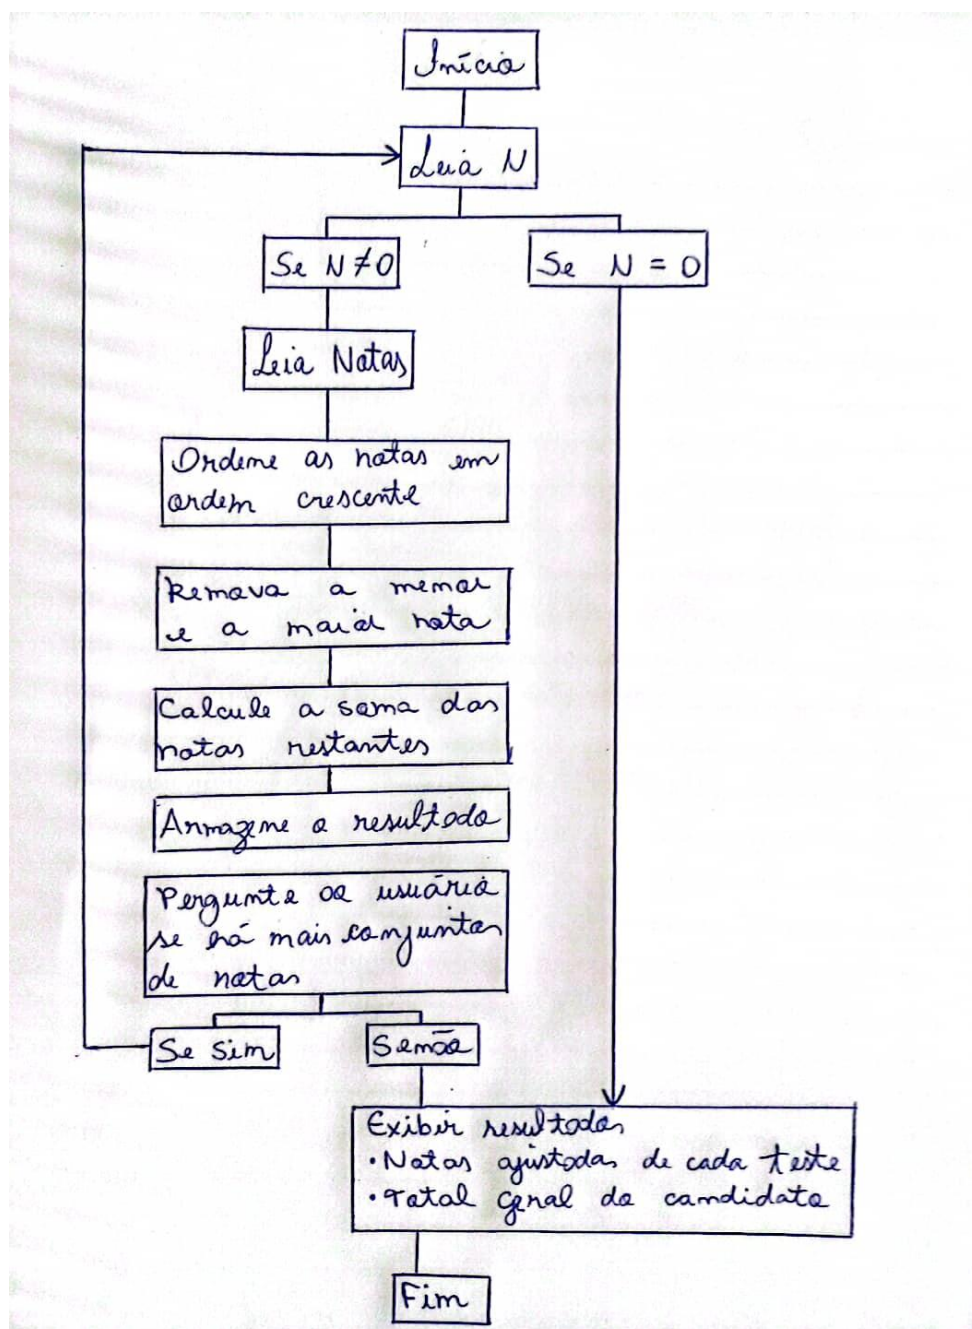 Início
Leia N
Se N ≠ 0
Se N = 0
Leia Notas
Ordene as notas em
ordem crescente
Remova a menor
e a maior nota
Calcule a soma das
notas restantes
Armazene o resultado
Pergunte ao usuário
se há mais conjuntos
de notas
Se sim
Senão
Exibir resultados
• Notas ajustadas de cada teste
• Total geral do candidato
Fim